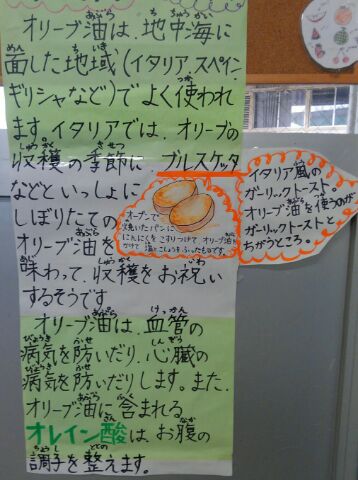 オリーブ油は、地中海に
面した地域(イタリア、スペイン、
ギリシャなど)でよく使われ
ます。イタリアでは、オリーブの
収穫の季節に、ブルスケッタ
などといっしょに
しぼりたての
オリーブ油を
味わって、収穫をお祝い
するそうです
オリーブ油は、血管の
病気を防いだり、心臓の
病気を防いだりします。また、
オリーブ油に含まれる
オレイン酸は、お腹の
調子を整えます。
オーブンで
焼いたパンに
にんにくをこすりつけて オリーブ油を
かけて 塩とこしょうをふったものです。
イタリア風の
ガーリックトースト。
オリーブ油を使うのが
ガーリックトーストと
ちがうところ。